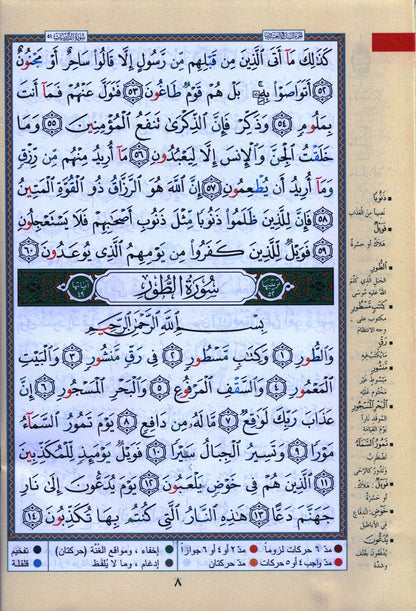 سورة الذاريات ٥١
كَذَٰلِكَ مَآ أَتَى ٱلَّذِينَ مِن قَبۡلِهِم مِّن رَّسُولٍ إِلَّا قَالُواْ سَاحِرٌ أَوۡ مَجۡنُونٌ
٥٢ أَتَوَاصَوۡاْ بِهِۦۚ بَلۡ هُمۡ قَوۡمٞ طَاغُونَ ٥٣ فَتَوَلَّ عَنۡهُمۡ فَمَآ أَنتَ
بِمَلُومٖ ٥٤ وَذَكِّرۡ فَإِنَّ ٱلذِّكۡرَىٰ تَنفَعُ ٱلۡمُؤۡمِنِينَ ٥٥ وَمَا
خَلَقۡتُ ٱلۡجِنَّ وَٱلۡإِنسَ إِلَّا لِيَعۡبُدُونِ ٥٦ مَآ أُرِيدُ مِنۡهُم مِّن رِّزۡقٖ
وَمَآ أُرِيدُ أَن يُطۡعِمُونِ ٥٧ إِنَّ ٱللَّهَ هُوَ ٱلرَّزَّاقُ ذُو ٱلۡقُوَّةِ ٱلۡمَتِينُ
٥٨ فَإِنَّ لِلَّذِينَ ظَلَمُواْ ذَنُوبٗا مِّثۡلَ ذَنُوبِ أَصۡحَٰبِهِمۡ فَلَا يَسۡتَعۡجِلُونِ
٥٩ فَوَيۡلٞ لِّلَّذِينَ كَفَرُواْ مِن يَوۡمِهِمُ ٱلَّذِي يُوعَدُونَ ٦٠
ترتيبها ٥٢ سُورَةُ الطُّورِ آياتها ٤٩
بِسۡمِ ٱللَّهِ ٱلرَّحۡمَٰنِ ٱلرَّحِيمِ
وَٱلطُّورِ ١ وَكِتَٰبٖ مَّسۡطُورٖ ٢ فِي رَقّٖ مَّنشُورٖ ٣ وَٱلۡبَيۡتِ
ٱلۡمَعۡمُورِ ٤ وَٱلسَّقۡفِ ٱلۡمَرۡفُوعِ ٥ وَٱلۡبَحۡرِ ٱلۡمَسۡجُورِ ٦ إِنَّ
عَذَابَ رَبِّكَ لَوَٰقِعٞ ٧ مَّا لَهُۥ مِن دَافِعٖ ٨ يَوۡمَ تَمُورُ ٱلسَّمَآءُ
مَوۡرٗا ٩ وَتَسِيرُ ٱلۡجِبَالُ سَيۡرٗا ١٠ فَوَيۡلٞ يَوۡمَئِذٖ لِّلۡمُكَذِّبِينَ
١١ ٱلَّذِينَ هُمۡ فِي خَوۡضٖ يَلۡعَبُونَ ١٢ يَوۡمَ يُدَعُّونَ إِلَىٰ نَارِ
جَهَنَّمَ دَعًّا ١٣ هَٰذِهِ ٱلنَّارُ ٱلَّتِي كُنتُم بِهَا تُكَذِّبُونَ ١٤
ذَنُوبًا
نصيبا من العذاب
فَوَيْلٌ
هلاك أو حسرة
الطُّورِ
الجبل الذي كلّم
الله عليه موسى
كِتَابٍ مَسْطُورٍ
مكتوب على
وجه الانتظام
رَقٍّ
ما يكتب فيه
مَنْشُورٍ
مبسوط غير
مختوم عليه
الْبَحْرِ الْمَسْجُورِ
الموقد نارا
يوم القيامة
تَمُورُ السَّمَاءُ
تضطرب
وتدور كالرحى
فَوَيْلٌ: هلاك
أو حسرة
خَوْضٍ: اندفاع
في الأباطيل
يُدَعُّونَ
يُدفعون بعنف
وشدة
مدّ ٦ حركات لزوماً مدّ ٢ أو ٤ أو ٦ جوازاً إخفاء، ومواقع الغُنَّة (حركتان) تفخيم
مدّ واجب ٤ أو ٥ حركات مدّ حركتان إدغام، وما لا يُلفَظ قلقلة
٨